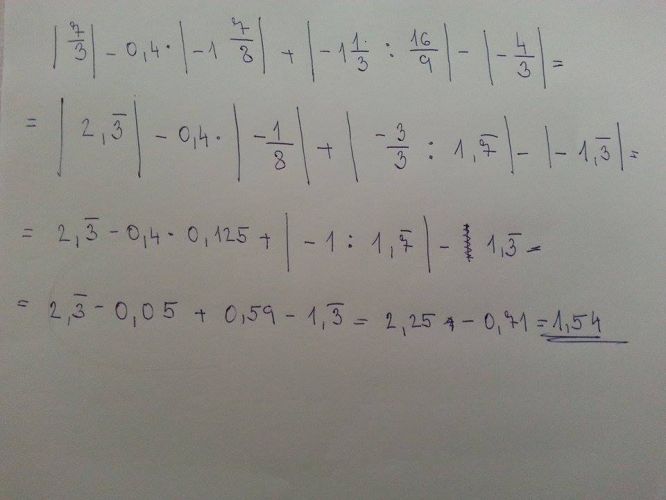 |7/3| - 0,4 · |-1 7/8| + |-1 1/3 : 16/9| - |-4/3| =
= |2,3̅| - 0,4 · |-1/8| + |-3/3 : 1,7̅| - |-1,3̅| =
= 2,3̅ - 0,4 · 0,125 + |-1 : 1,7̅| - 1,3̅ =
= 2,3̅ - 0,05 + 0,59 - 1,3̅ = 2,25 - 0,71 = 1,54